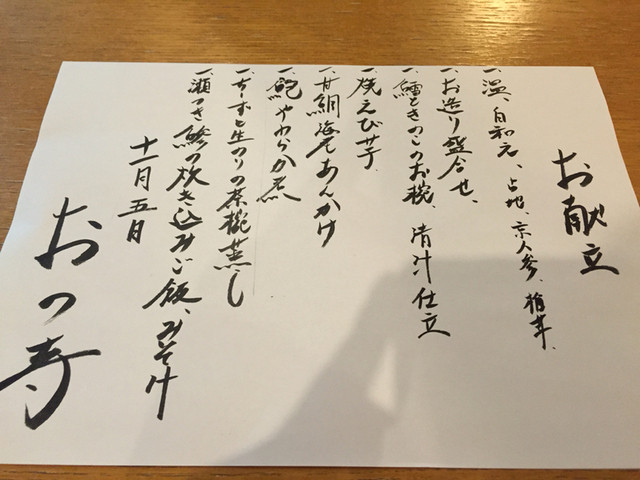 お献立
一、温、白和え、占地、京人参、椎茸、
一、お造り盛合せ、
一、鱈ときのこのお椀、清汁仕立
一、焼えび芋
一、甘鯛 あんかけ
一、鮑やわらか煮
一、ちーずと生のりの茶椀蒸し
一、瀬つき鯵の炊き込みご飯、みそ汁
十一月五日
おの寺